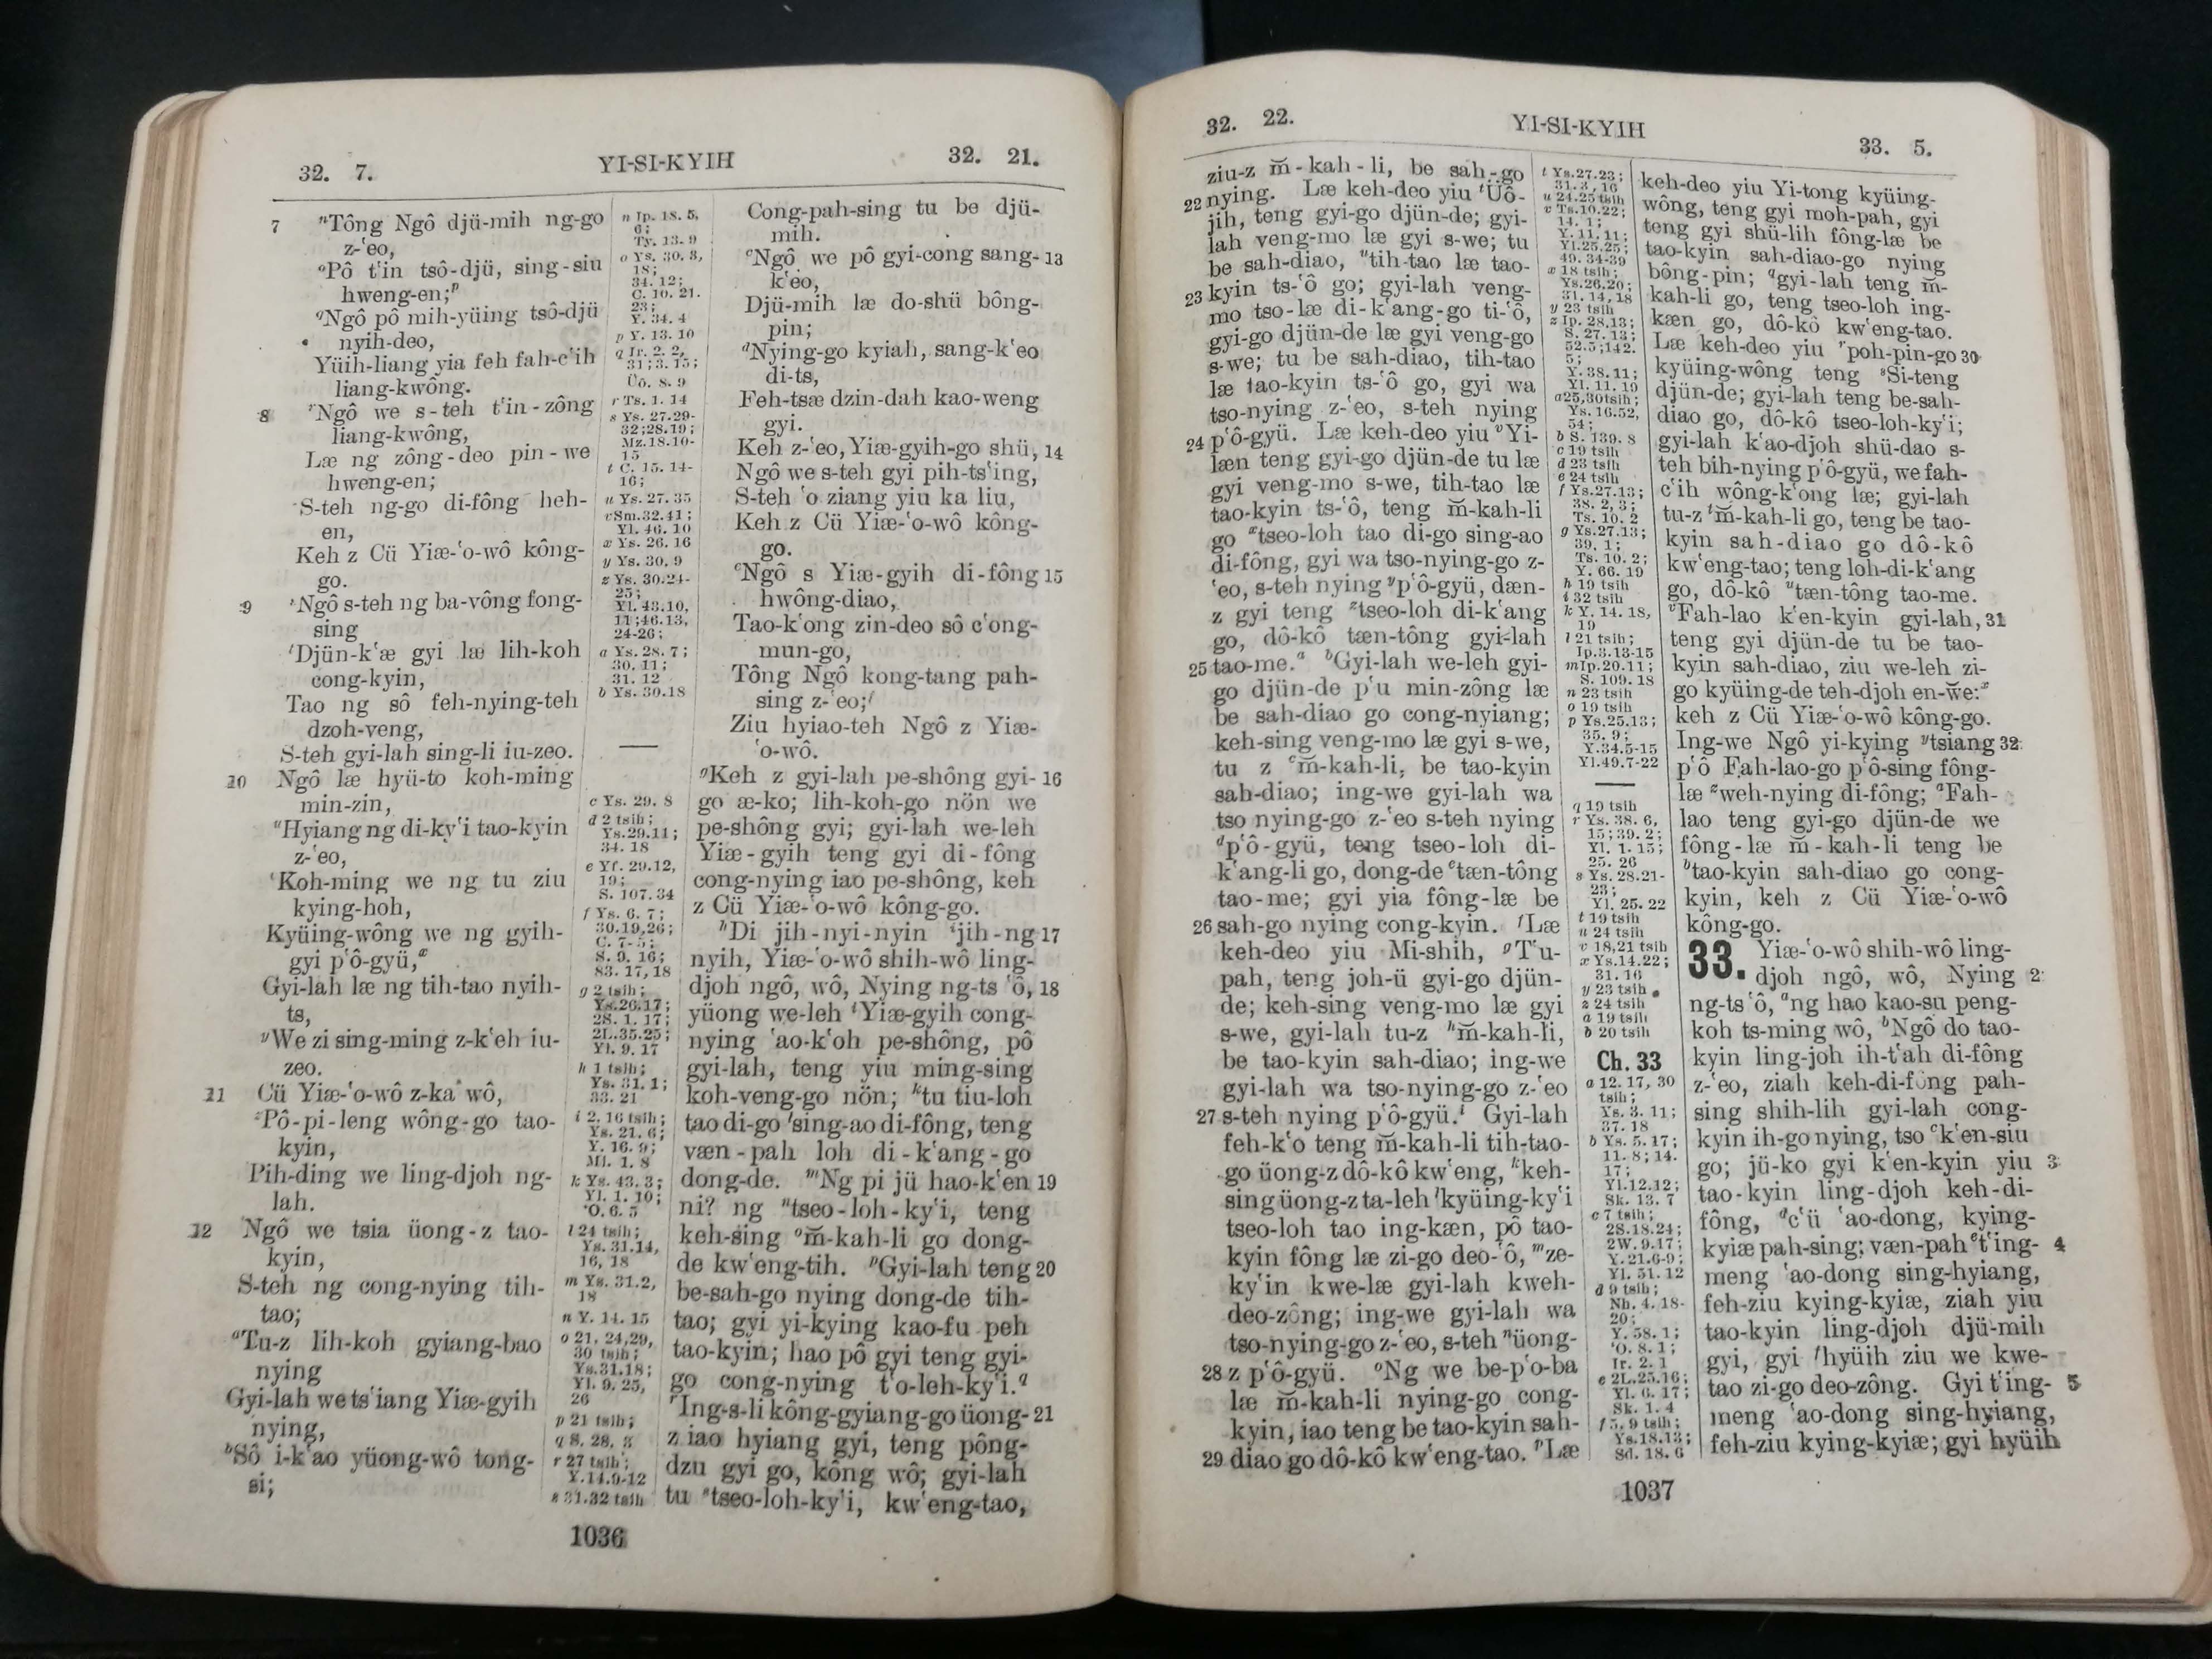 32. 7.
YI-SI-KYIH
32. 21.
7 ⁿTông Ngô djü-mih ng-go
z-ʻeo,
ᵒPô tʻin tsô-djü, sing-siu
hweng-en;ᵖ
ᑫNgô pô mih-yüing tsô-djü
nyih-deo,
Yüih-liang yia feh fah-cʻih
liang-kwông.
8 ʳNgô we s-teh tʻin-zông
liang-kwông,
Læ ng zông-deo pin-we
hweng-en;
S-teh ng-go di-fông heh-
en,
Keh z Cü Yiæ-ʻo-wô kông-
go.
9 ˢNgô s-teh ng ba-vông fong-
sing
ᵗDjün-kʻæ gyi læ lih-koh
cong-kyin,
Tao ng sô feh-nying-teh
dzoh-veng,
S-teh gyi-lah sing-li iu-zeo.
10 Ngô læ hyü-to koh-ming
min-zin,
ᵘHyiang ng di-kyʻi tao-kyin
z-ʻeo,
ᵗKoh-ming we ng tu ziu
kying-hoh,
Kyüing-wông we ng gyih-
gyi pʻô-gyü,ˣ
Gyi-lah læ ng tih-tao nyih-
ts,
ʸWe zi sing-ming z-kʻeh iu-
zeo.
11 Cü Yiæ-ʻo-wô z-ka wô,
ᶻPô-pi-leng wông-go tao-
kyin,
Pih-ding we ling-djoh ng-
lah.
12 Ngô we tsia üong-z tao-
kyin,
S-teh ng cong-nying tih-
tao;
ᵃTu-z lih-koh gyiang-bao
nying
Gyi-lah we tsʻiang Yiæ-gyih
nying,
ᵇSô i-kʻao yüong-wô tong-
si;
n Ip. 18. 5,
6;
Ty. 13. 9
o Ys. 30. 3,
18;
34. 12;
C. 10. 21.
23;
Y. 34. 4
p Y. 13. 10
q Ir. 2. 2,
31; 3. 15;
Üô. 8. 9
r Ts. 1. 14
s Ys. 27. 29-
32; 28. 19;
Mz. 18. 10-
15
t C. 15. 14-
16;
u Ys. 27. 35
v Sm. 32. 41;
Yl. 46. 10
x Ys. 26. 16
y Ys. 30. 9
z Ys. 30. 24-
25;
Yl. 43. 10,
11; 46. 13,
24-26;
a Ys. 28. 7;
30. 11;
31. 12
b Ys. 30. 18
c Ys. 29. 8
d 2 tsih;
Ys. 29. 11;
34. 18
e Yf. 29. 12,
19;
S. 107. 34
f Ys. 6. 7;
30. 19, 26;
C. 7-5;
S. 9. 16;
83. 17, 18
g 2 tsih;
Ys. 26. 17;
2S. 1. 17;
2L. 35. 25;
Yl. 9. 17
h 1 tsih;
Ys. 31. 1;
33. 21
i 2, 16 tsih;
Ys. 21. 6;
Y. 16. 9;
Ml. 1. 8
k Ys. 43. 3;
Yl. 1. 10;
ʻO. 6. 5
l 24 tsih;
Ys. 31. 14,
16, 18
m Ys. 31. 2,
18
n Y. 14. 15
o 21. 24, 29,
30 tsih;
Ys. 31. 18;
Yl. 9. 25,
26
p 21 tsih;
q S. 28. 3
r 27 tsih;
Y. 14. 9-12
s 31. 32 tsih
Cong-pah-sing tu be djü-
mih.
ᶜNgô we pô gyi-cong sang- 13
kʻeo,
Djü-mih læ do-shü bông-
pin;
ᵈNying-go kyiah, sang-kʻeo
di-ts,
Feh-tsæ dzin-dah kao-weng
gyi.
Keh z-ʻeo, Yiæ-gyih-go shü, 14
Ngô we s-teh gyi pih-tsʻing,
S-teh ʻo ziang yiu ka liu,
Keh z Cü Yiæ-ʻo-wô kông-
go.
ᵉNgô s Yiæ-gyih di-fông 15
hwông-diao,
Tao-kʻong zin-deo sô cʻong-
mun-go,
Tông Ngô kong-tang pah-
sing z-ʻeo;ᶠ
Ziu hyiao-teh Ngô z Yiæ-
ʻo-wô.
ᵍKeh z gyi-lah pe-shông gyi- 16
go æ-ko; lih-koh-go nön we
pe-shông gyi; gyi-lah we-leh
Yiæ-gyih teng gyi di-fông
cong-nying iao pe-shông, keh
z Cü Yiæ-ʻo-wô kông-go.
ʰDi jih-nyi-nyin ⁱjih-ng 17
nyih, Yiæ-ʻo-wô shih-wô ling-
djoh ngô, wô, Nying ng-ts ʻô, 18
yüong we-leh ⁱYiæ-gyih cong-
nying ʻao-kʻoh pe-shông, pô
gyi-lah, teng yiu ming-sing
koh-veng-go nön; ᵏtu tiu-loh
tao di-go ˡsing-ao di-fông, teng
væn-pah loh di-kʻang-go
dong-de. ᵐNg pi jü hao-kʻen 19
ni? ng ⁿtseo-loh-kyʻi, teng
keh-sing ᵒm̆-kah-li go dong-
de kwʻeng-tih. ᵖGyi-lah teng 20
be-sah-go nying dong-de tih-
tao; gyi yi-kying kao-fu peh
tao-kyin; hao pô gyi teng gyi-
go cong-nying tʻo-leh-kyʻi.ᑫ
ʳIng-s-li kông-gyiang-go üong- 21
z iao hyiang gyi, teng pông-
dzu gyi go, kông wô; gyi-lah
tu ˢtseo-loh-kyʻi, kwʻeng-tao,
1036
32. 22.
YI-SI-KYIH
33. 5.
ziu-z m̆-kah-li, be sah-go
22 nying. Læ keh-deo yiu ᵗÜô-
jih, teng gyi-go djün-de; gyi-
lah veng-mo læ gyi s-we; tu
be sah-diao, ᵘtih-tao læ tao-
23 kyin ts-ʻô go; gyi-lah veng-
mo tso-læ di-kʻang-go ti-ʻô,
gyi-go djün-de læ gyi veng-go
s-we; tu be sah-diao, tih-tao
læ tao-kyin ts-ʻô go, gyi wa
tso-nying z-ʻeo, s-teh nying
24 pʻô-gyü. Læ keh-deo yiu ᵛYi-
læn teng gyi-go djün-de tu læ
gyi veng-mo s-we, tih-tao læ
tao-kyin ts-ʻô, teng m̆-kah-li
go ˣtseo-loh tao di-go sing-ao
di-fông, gyi wa tso-nying-go z-
ʻeo, s-teh nying ʸpʻô-gyü, dæn-
z gyi teng ᶻtseo-loh di-kʻang
go, dô-kô tæn-tông gyi-lah
25 tao-me.ᵃ ᵇGyi-lah we-leh gyi-
go djün-de pʻu min-zông læ
be sah-diao go cong-nyiang;
keh-sing veng-mo læ gyi s-we,
tu z ᶜm̆-kah-li, be tao-kyin
sah-diao; ing-we gyi-lah wa
tso nying-go z-ʻeo s-teh nying
ᵈpʻô-gyü, teng tseo-loh di-
kʻang-li go, dong-de ᵉtæn-tông
tao-me; gyi yia fông-læ be
26 sah-go nying cong-kyin. ᶠLæ
keh-deo yiu Mi-shih, ᵍTʻu-
pah, teng joh-ü gyi-go djün-
de; keh-sing veng-mo læ gyi
s-we, gyi-lah tu-z ʰm̆-kah-li,
be tao-kyin sah-diao; ing-we
gyi-lah wa tso-nying-go z-ʻeo
27 s-teh nying pʻô-gyü.ⁱ Gyi-lah
feh-kʻo teng m̆-kah-li tih-tao-
go üong-z dô-kô kwʻeng, ᵏkeh-
sing üong-z ta-leh ˡkyüing-kyʻi
tseo-loh tao ing-kæn, pô tao-
kyin fông læ zi-go deo-ʻô, ᵐze-
kyʻin kwe-læ gyi-lah kweh-
deo-zông; ing-we gyi-lah wa
tso-nying-go z-ʻeo, s-teh ⁿüong-
28 z pʻô-gyü. ᵒNg we be-pʻo-ba
læ m̆-kah-li nying-go cong-
kyin, iao teng be tao-kyin sah-
29 diao go dô-kô kwʻeng-tao. ᵖLæ
t Ys. 27. 23;
31. 3, 16
u 24. 25 tsih
v Ts. 10. 22;
14. 1;
Y. 11. 11;
Yl. 25. 25;
49. 34-39
x 18 tsih;
Ys. 26. 20;
31. 14, 18
y 23 tsih
z Ip. 28. 13;
S. 27. 13;
52. 5; 142.
5;
Y. 38. 11;
Yl. 11. 19
a 25, 30 tsih;
Ys. 16. 52,
54;
b S. 139. 8
c 19 tsih
d 23 tsih
e 24 tsih
f Ys. 27. 13;
38. 2, 3;
Ts. 10. 2
g Ys. 27. 13;
39. 1;
Ts. 10. 2;
Y. 66. 19
h 19 tsih
i 32 tsih
k Y. 14. 18,
19
l 21 tsih;
Ip. 3. 13-15
m Ip. 20. 11;
S. 109. 18
n 23 tsih
o 19 tsih
p Ys. 25. 13;
35. 9;
Y. 34. 5-15
Yl. 49. 7-22
q 19 tsih
r Ys. 38. 6,
15; 39. 2;
Yl. 1. 15;
25. 26
s Ys. 28. 21-
23;
Yl. 25. 22
t 19 tsih
u 24 tsih
v 18, 21 tsih
x Ys. 14. 22;
31. 16
y 23 tsih
z 24 tsih
a 19 tsih
b 20 tsih
Ch. 33
a 12. 17, 30
tsih;
Ys. 3. 11;
37. 18
b Ys. 5. 17;
11. 8; 14.
17;
Yl. 12. 12;
Sk. 13. 7
c 7 tsih;
2S. 18. 24;
2W. 9. 17;
Y. 21. 6-9;
Yl. 51. 12
d 9 tsih;
Nh. 4. 18-
20;
Y. 58. 1;
ʻO. 8. 1;
Ir. 2. 1
e 2L. 25. 16;
Yl. 6. 17;
Sk. 1. 4
f 5, 9 tsih;
Ys. 18. 13;
Sd. 18. 6
keh-deo yiu Yi-tong kyüing-
wông, teng gyi moh-pah, gyi
teng gyi shü-lih fông-læ be
tao-kyin sah-diao-go nying
bông-pin; ᑫgyi-lah teng m̆-
kah-li go, teng tseo-loh ing-
kæn go, dô-kô kwʻeng-tao.
Læ keh-deo yiu ʳpoh-pin-go 30
kyüing-wông teng ˢSi-teng
djün-de; gyi-lah teng be-sah-
diao go, dô-kô tseo-loh-kyʻi;
gyi-lah kʻao-djoh shü-dao s-
teh bih-nying pʻô-gyü, we fah-
cʻih wông-kʻong læ; gyi-lah
tu-z ᵗm̆-kah-li go, teng be tao-
kyin sah-diao go dô-kô
kwʻeng-tao; teng loh-di-kʻang
go, dô-kô ᵘtæn-tông tao-me.
ᵛFah-lao kʻen-kyin gyi-lah, 31
teng gyi djün-de tu be tao-
kyin sah-diao, ziu we-leh zi-
go kyüing-de teh-djoh en-we:ˣ
keh z Cü Yiæ-ʻo-wô kông-go.
Ing-we Ngô yi-kying ʸtsiang 32
pʻô Fah-lao-go pʻô-sing fông-
læ ᶻweh-nying di-fông; ᵃFah-
lao teng gyi-go djün-de we
fông-læ m̆-kah-li teng be
ᵇtao-kyin sah-diao go cong-
kyin, keh z Cü Yiæ-ʻo-wô
kông-go.
33. Yiæ-ʻo-wô shih-wô ling-
djoh ngô, wô, Nying 2
ng-ts ʻô, ᵃng hao kao-su peng-
koh ts-ming wô, ᵇNgô do tao-
kyin ling-joh ih-tʻah di-fông
z-ʻeo, ziah keh-di-fông pah-
sing shih-lih gyi-lah cong-
kyin ih-go nying, tso ᶜkʻen-siu
go; jü-ko gyi kʻen-kyin yiu 3
tao-kyin ling-djoh keh-di-
fông, ᵈcʻü ʻao-dong, kying-
kyiæ pah-sing; væn-pah ᵉtʻing- 4
meng ʻao-dong sing-hyiang,
feh-ziu kying-kyiæ, ziah yiu
tao-kyin ling-djoh djü-mih
gyi, gyi ᶠhyüih ziu we kwe-
tao zi-go deo-zông. Gyi tʻing- 5
meng ʻao-dong sing-hyiang,
feh-ziu kying-kyiæ; gyi hyüih
1037